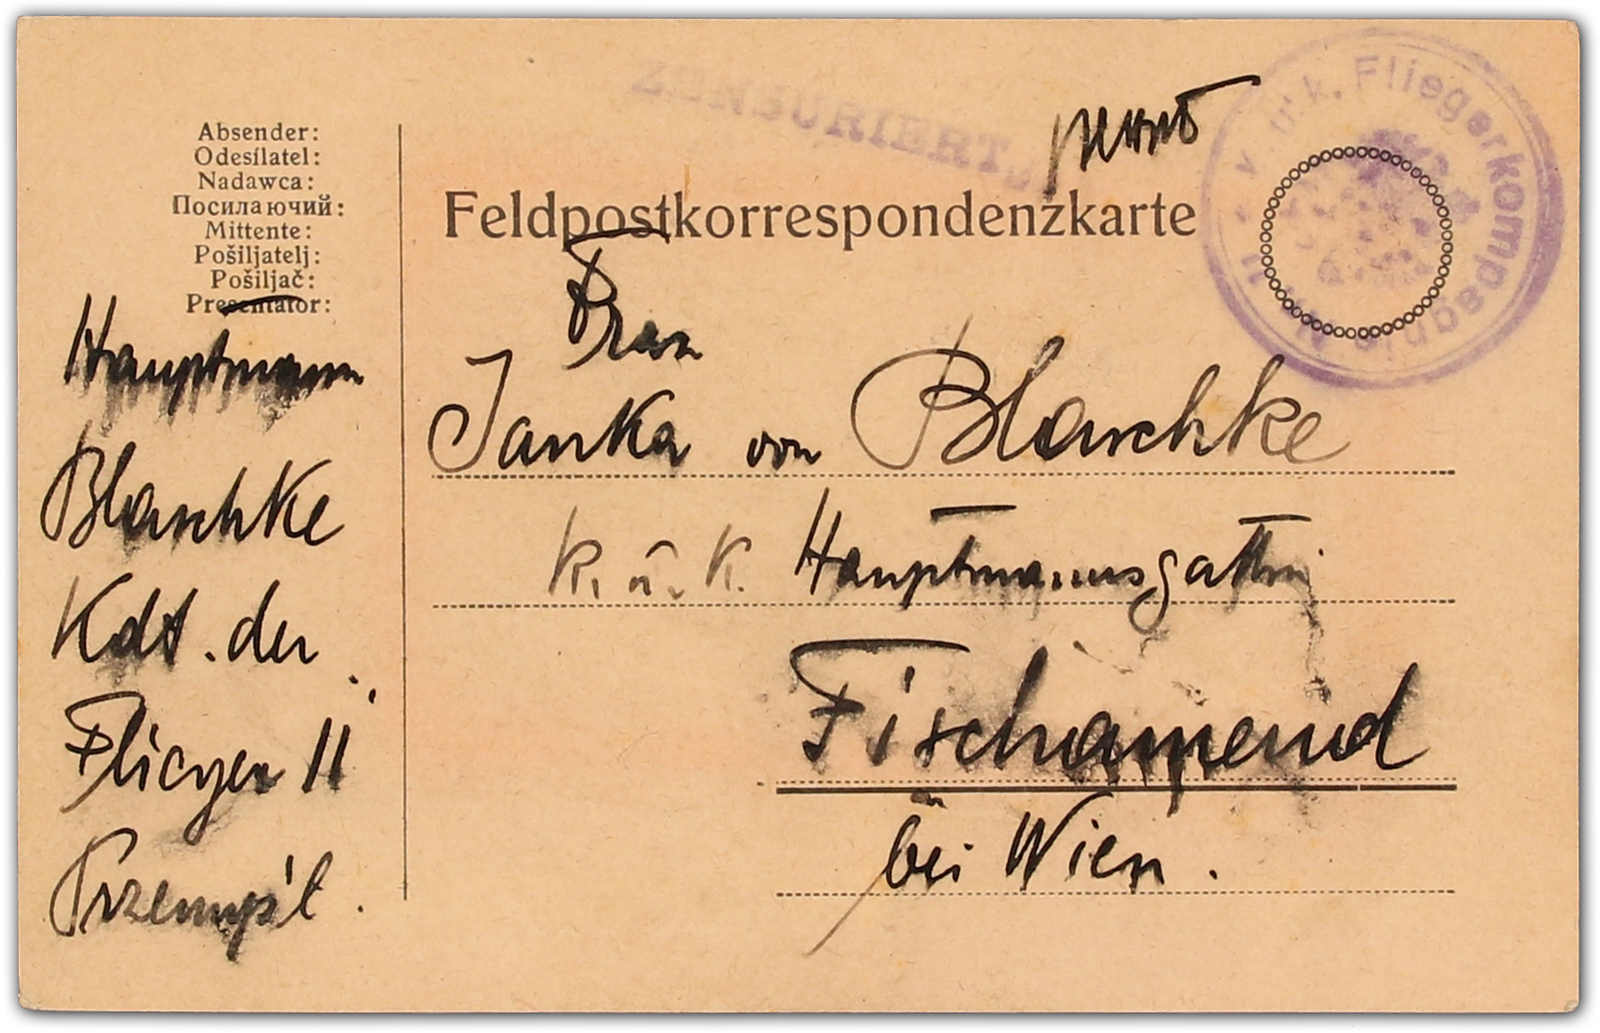 ZENSURIERT.
k. u. k. Fliegerkompagnie Nr. 11
Absender:
Odesílatel:
Nadawca:
Посилаючий:
Mittente:
Pošiljatelj:
Pošiljač:
Presentator:
Hauptmann
Blaschke
Kdt. der
Flieger 11
Przemyśl.
Feldpostkorrespondenzkarte
Frau
Janka von Blaschke
k. u. k. Hauptmannsgattin
Fischamend
bei Wien.